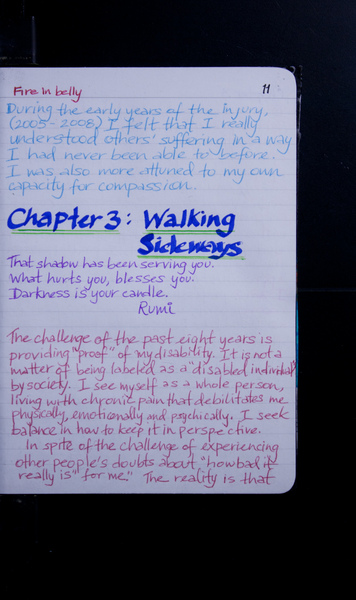 Fire in belly
11
During the early years of the injury,
(2005-2008) I felt that I really
understood others' suffering in a way
I had never been able to before.
I was also more attuned to my own
capacity for compassion.
Chapter 3: Walking
Sideways
That shadow has been serving you.
What hurts you, blesses you.
Darkness is your candle.
Rumi
The challenge of the past eight years is
providing "proof" of my disability. It is not a
matter of being labeled as a "disabled individual"
by society. I see myself as a whole person,
living with chronic pain that debilitates me
physically, emotionally and psychically. I seek
balance in how to keep it in perspective.
In spite of the challenge of experiencing
other people's doubts about "how bad it
really is" for me." The reality is that